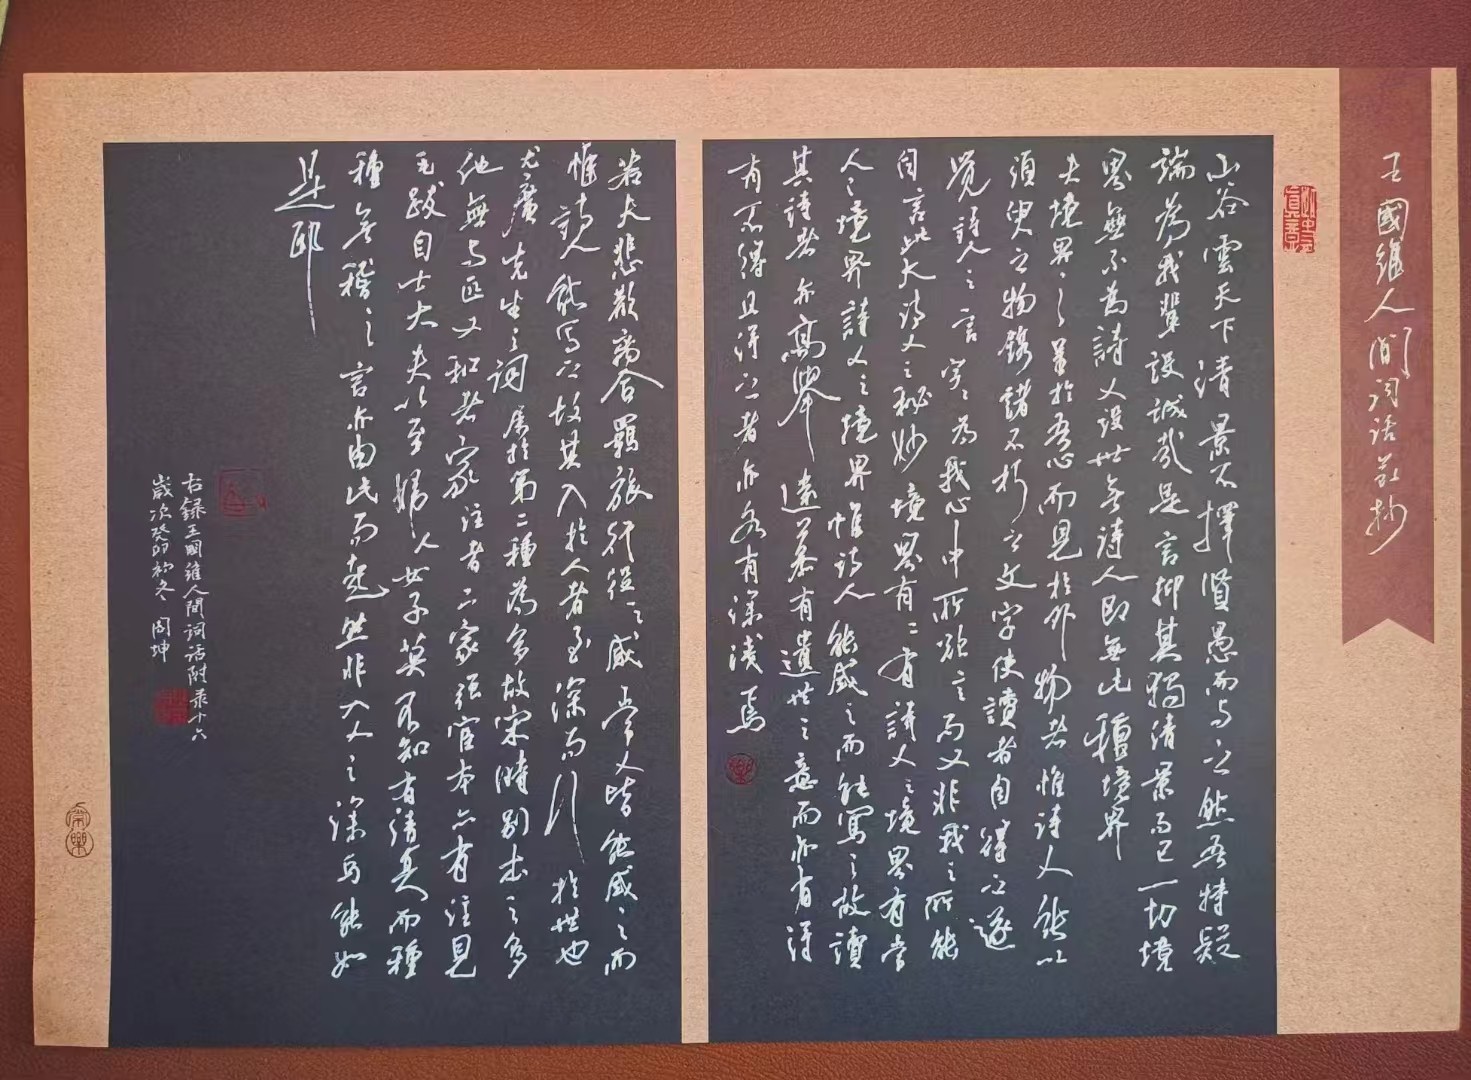 王國維人間詞話節抄
山谷雲天下清景不擇賢愚而与之然吾特疑
端為我輩設誠哉是言抑其獨清景而已一切境
界無不為詩人設世无詩人即無此種境界
夫境界之呈於吾心而見於外物者惟詩人能以
須臾之物鐫諸不朽之文字使讀者自得之遂
覺詩人之言字字為我心中所欲言而又非我之所能
自言此大詩人之秘妙境界有二有詩人之境界有常
人之境界詩人之境界惟詩人能感之而能寫之故讀
其詩者亦高舉遠慕有遺世之意而亦有得
有不得且得之者亦各有深淺焉
若夫悲歡離合羈旅行役之感常人皆能感之而
惟詩人能写之故其入於人者至深而行於世也
尤廣先生之詞屬於第二種為多故宋時别本之多
他無与匹又和者三家注者二家强官本亦有注見
毛跋自士大夫以至婦人女子莫不知有清真而種
種无稽之言亦由此而起然非入人之深烏能如
是耶
右録王國維人間詞話附录十六
歲次癸卯初冬 周坤